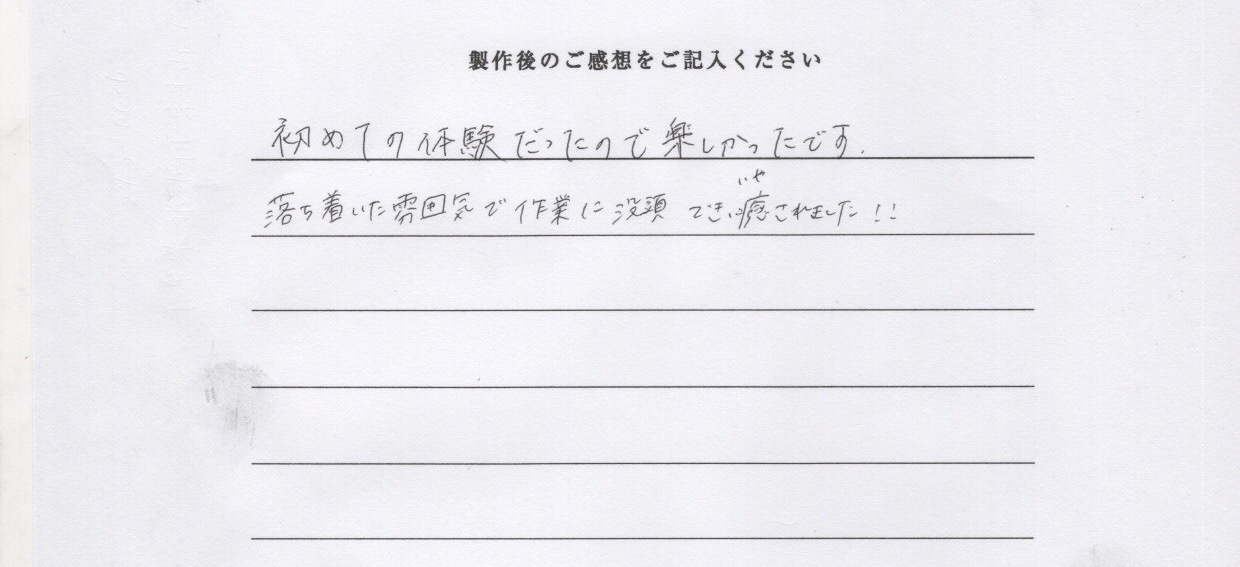 製作後のご感想をご記入ください
初めての体験だったので楽しかったです.
いや
落ち着いた雰囲気で作業に没頭でき癒されました!!